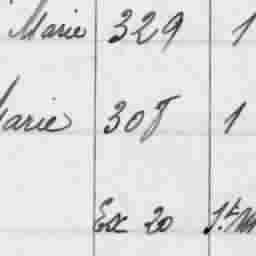 Marie 329 1
Marie 308 1
Ex 20 St